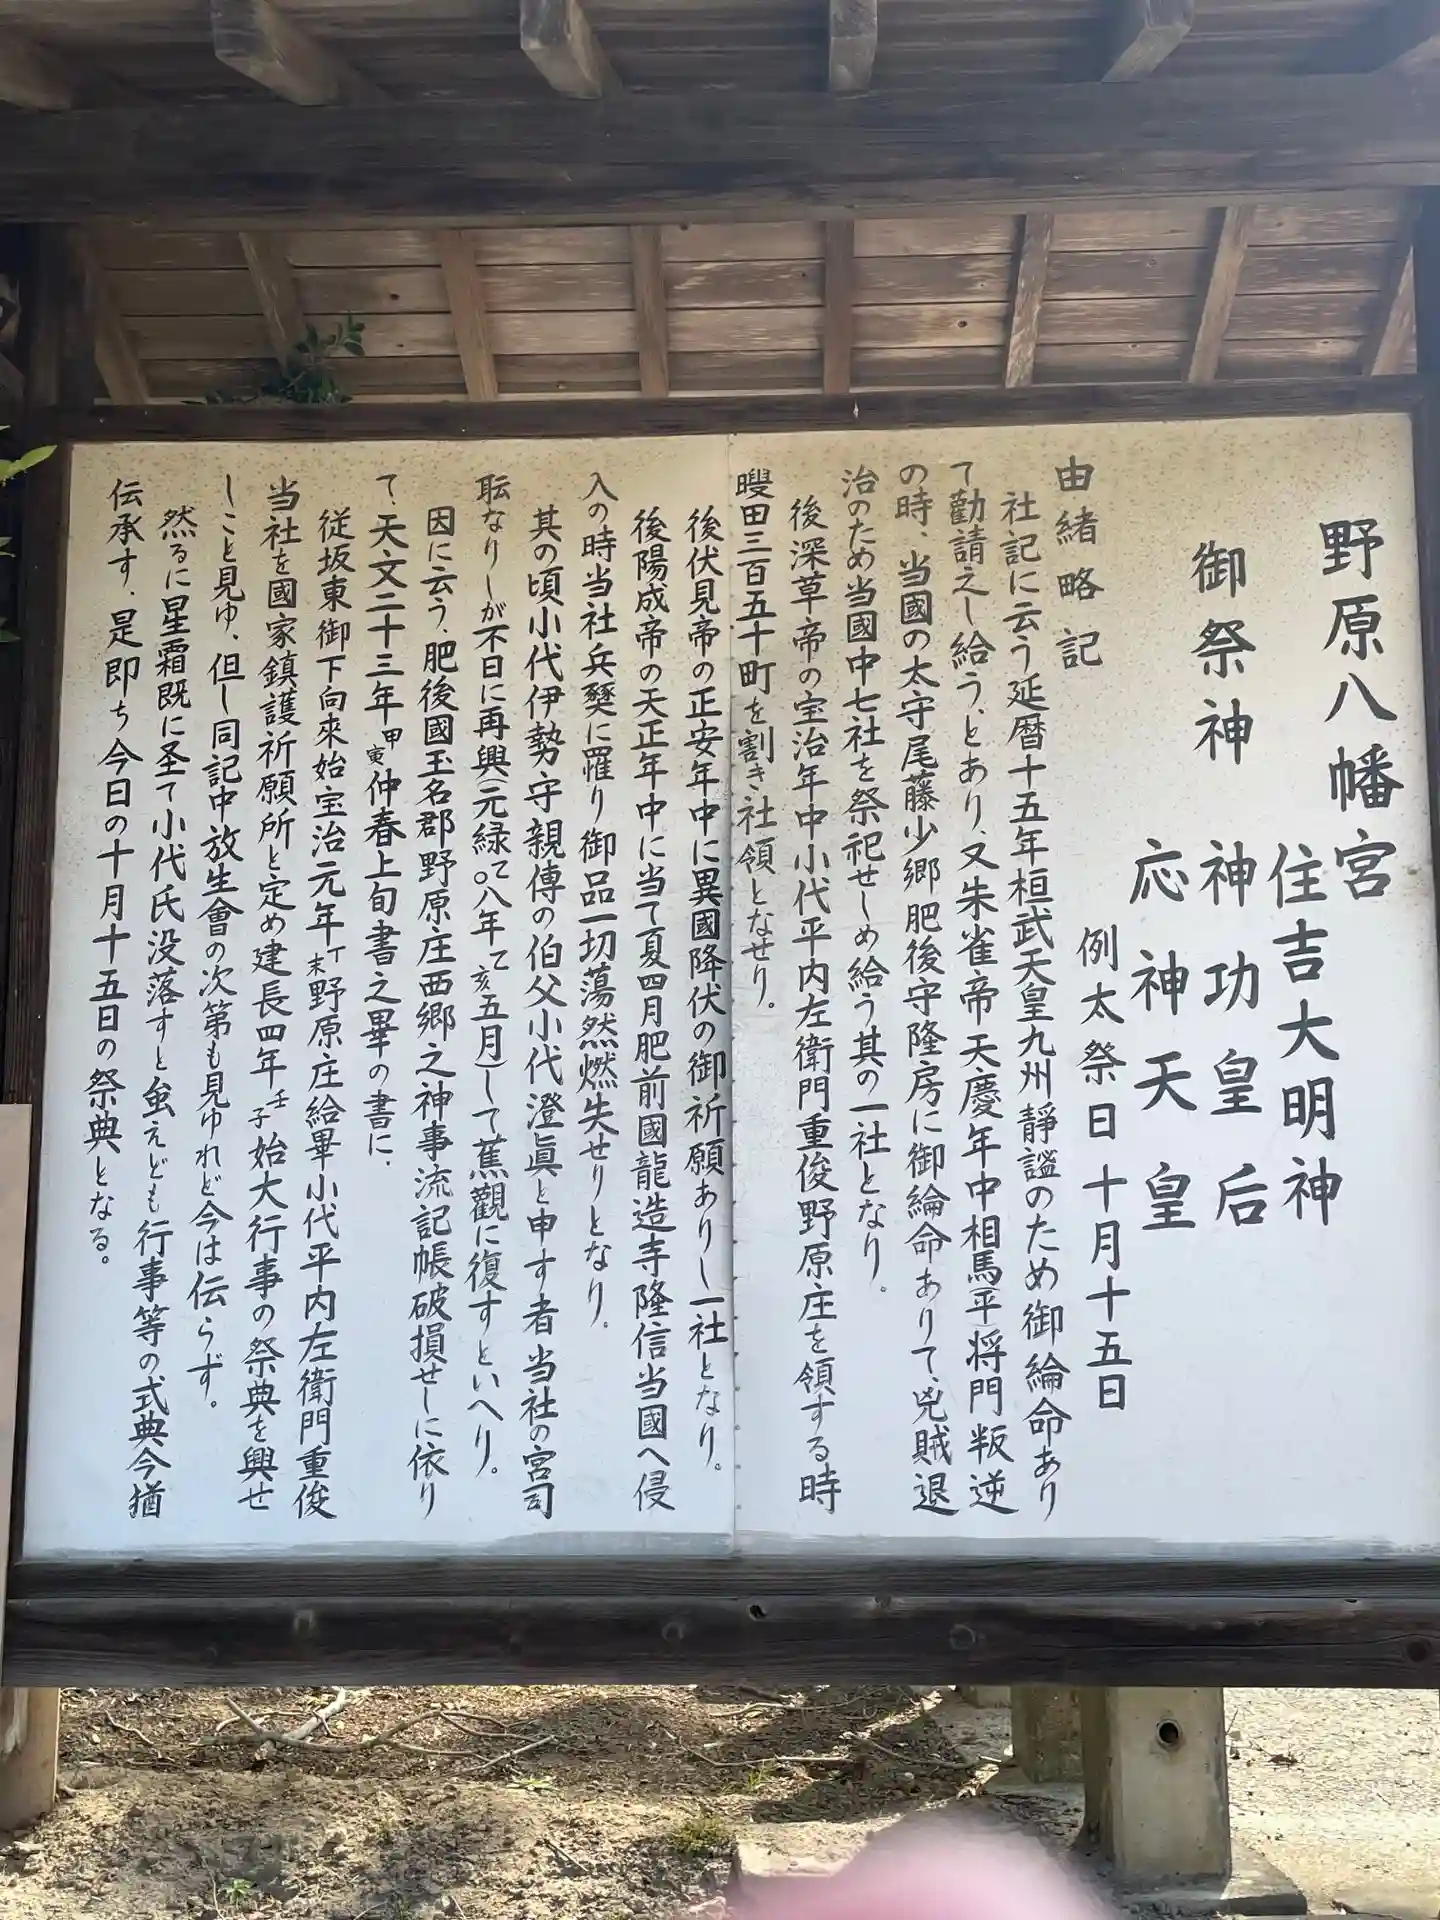 野原八幡宮
御祭神
住吉大明神
神功皇后
応神天皇
例太祭日 十月十五日
由緒略記
社記に云う延暦十五年桓武天皇九州靜謐のため御綸命あり
て勸請之し給う、とあり、又朱雀帝天慶年中相馬平将門叛逆
の時、当國の太守尾藤少郷肥後守隆房に御綸命ありて、兇賊退
治のため当國中七社を祭祀せしめ給う其の一社となり。
後深草帝の宝治年中小代平内左衛門重俊野原庄を領する時
田三百五十町を割き社領となせり。
後伏見帝の正安年中に異國降伏の御祈願ありし一社となり。
後陽成帝の天正年中に当て夏四月肥前國龍造寺隆信当國へ侵
入の時当社兵燹に罹り御品一切蕩然燃失せりとなり。
其の頃小代伊勢守親傳の伯父小代澄眞と申す者当社の宮司
なりしが不日に再興元緑て〇八年乙亥五月)して蕉觀に復すといへり。
因に云う、肥後國玉名郡野原庄西郷之神事流記帳破損せしに依り
て、天文二十三年甲寅仲春上旬書之畢の書に、
従坂東御下向來始宝治元年丁末野原庄給畢小代平内左衛門重俊
当社を國家鎮護祈願所と定め建長四年壬子始大行事の祭典を興せ
しこと見ゆ、但し同記中放生會の次第も見ゆれど今は伝らず。
然るに星霜既に圣て小代氏没落すと虽えども行事等の式典今猶
伝承す、是即ち今日の十月十五日の祭典となる。